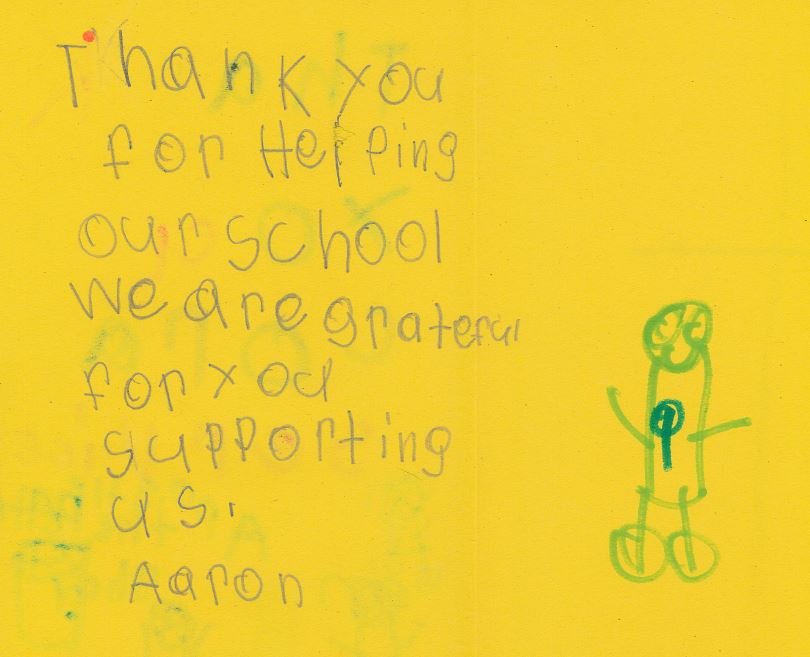 Thank you
for Helping
our school
We are grateful
for xou
supporting
us.
Aaron